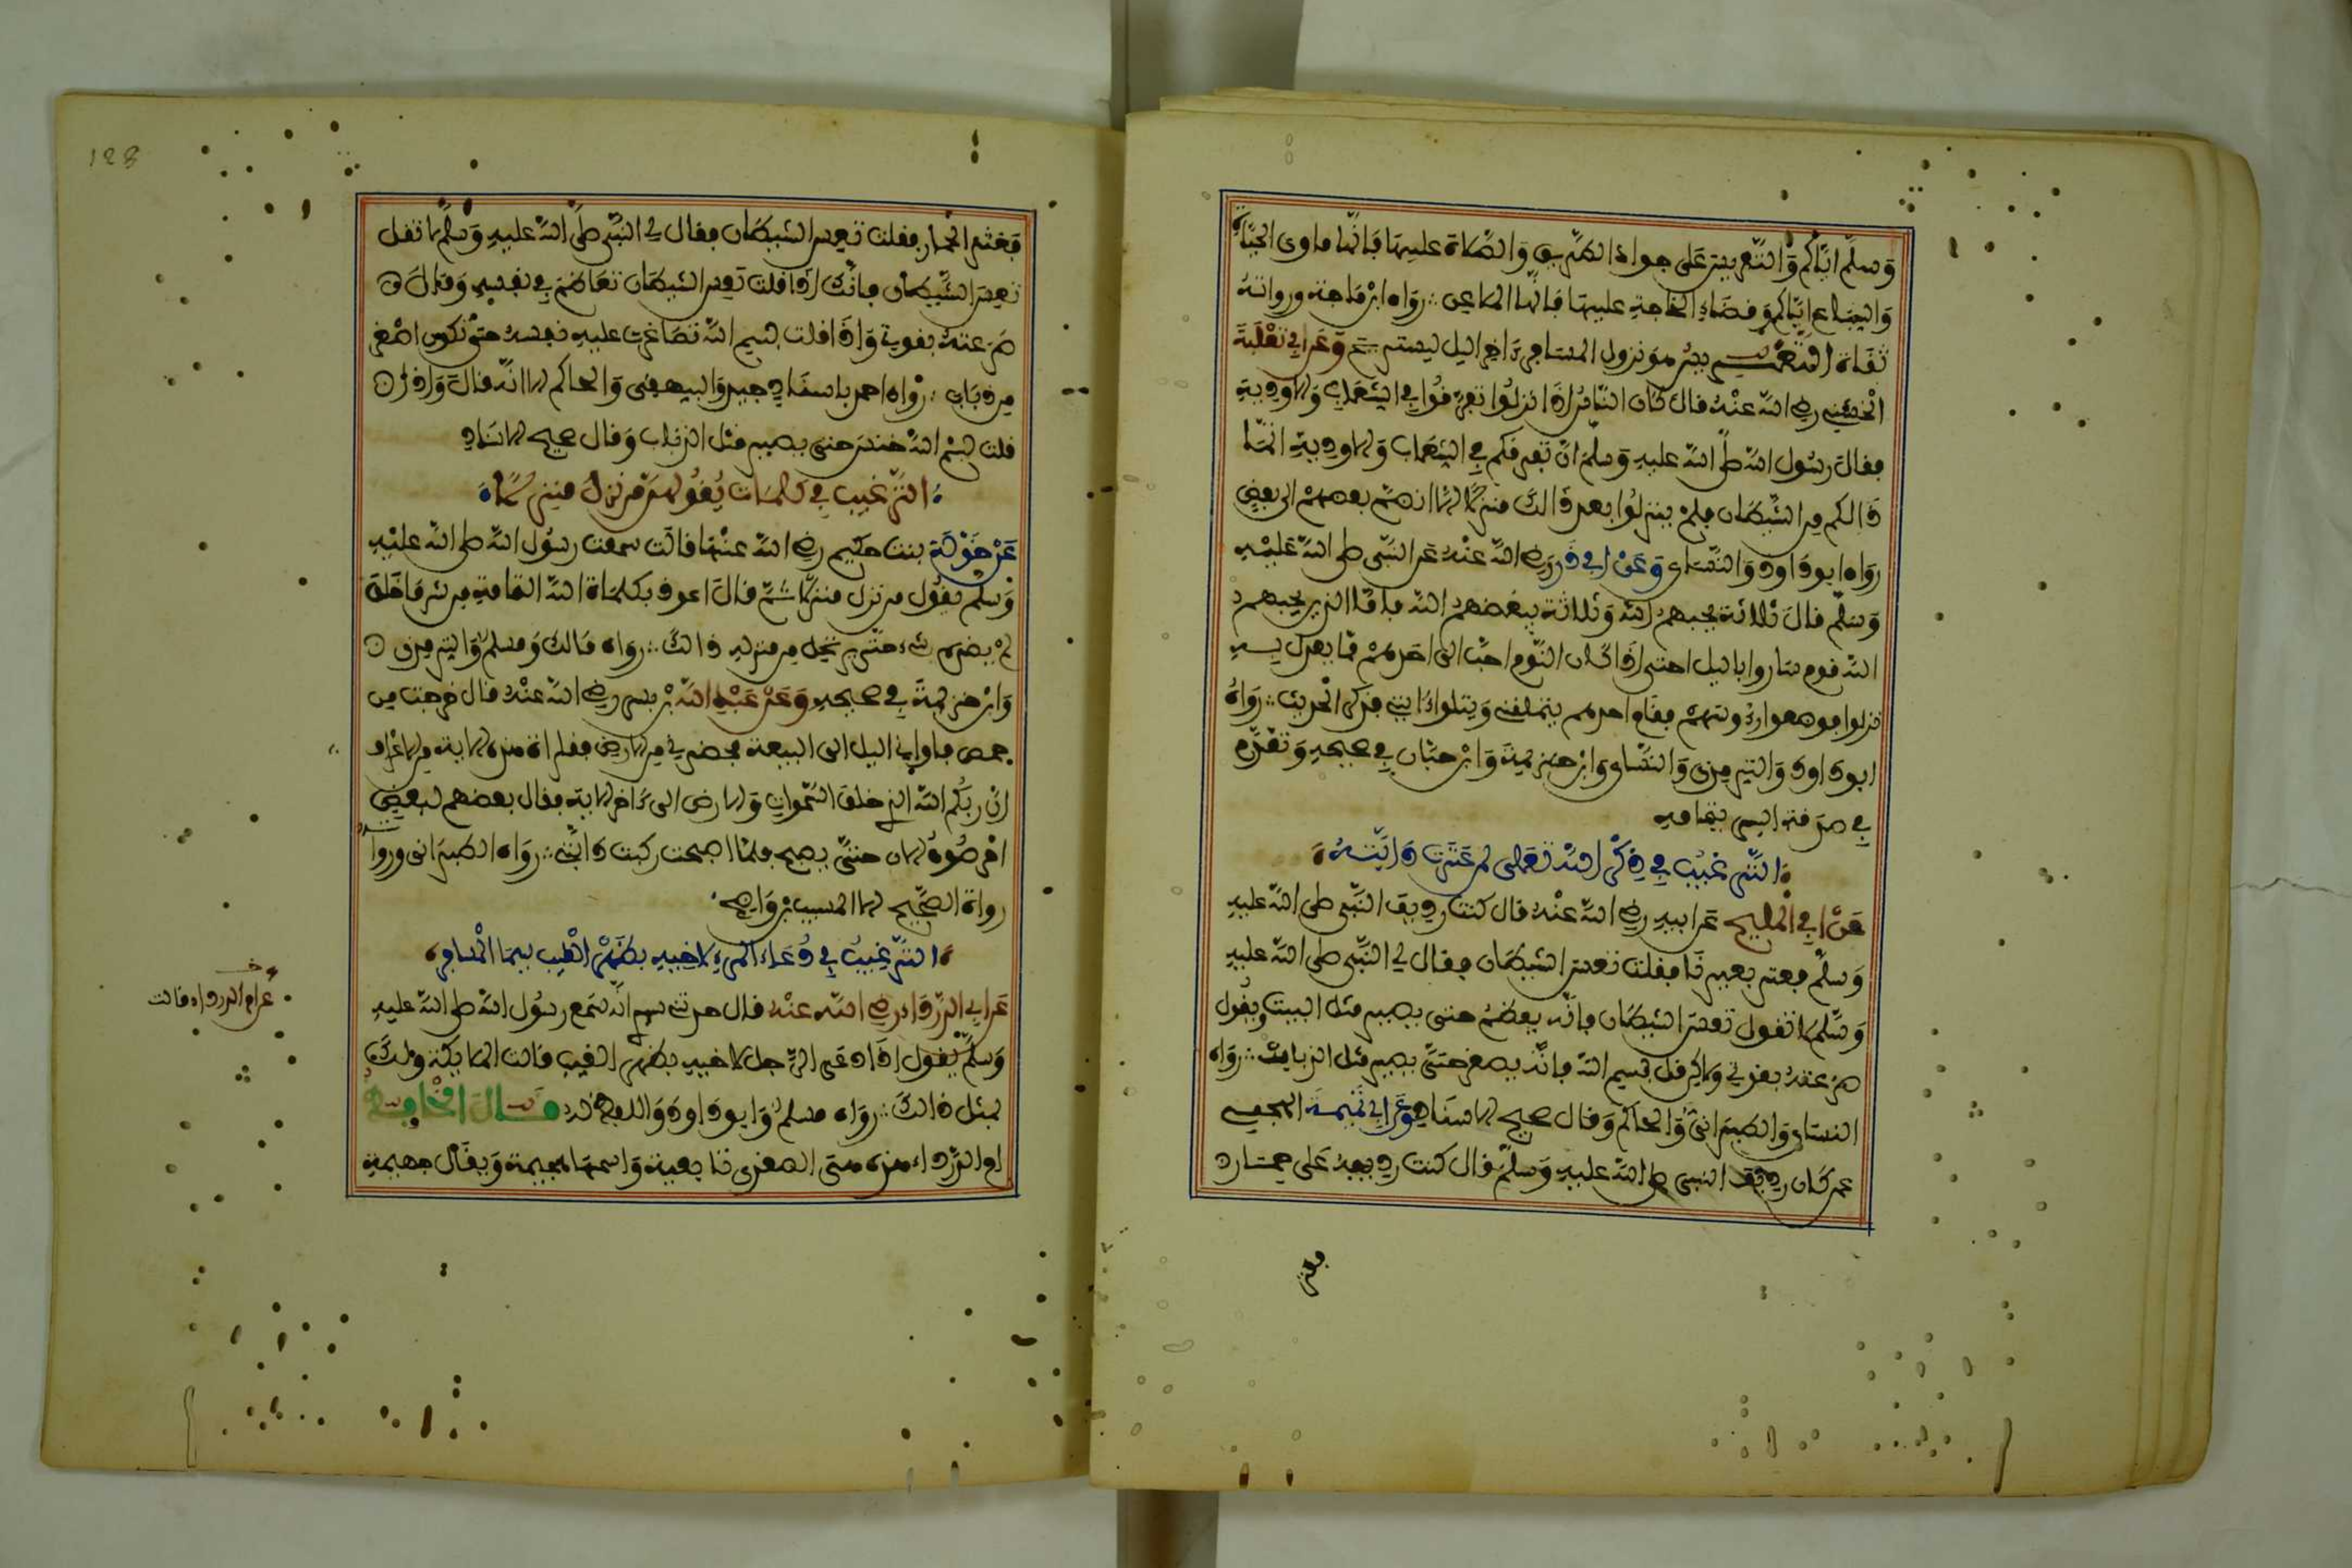 وسلم اياكم والتعريس على جواد الطريق والصلاة عليها فانها ماوى الحيات
والسباع اياكم وقضاء الحاجة عليها فانها الملاعن رواه ابن ماجة ورواته
ثقاة التعريس هو نزول المسافر ءاخر اليل ليستريح وعن ابي ثعلبة
الخشني رضي الله عنه قال كان الناس اذا نزلوا تفرقوا في الشعاب والاودية
فقال رسول الله صلى الله عليه وسلم ان تفرقكم في الشعاب والاودية انما
ذالكم من الشيطان فلم ينزلوا بعد ذالك منزلا الا انضم بعضهم الى بعض
رواه ابو داود والنساي وعن ابي ذر رضي الله عنه عن النبي صلى الله عليه
وسلم قال ثلاثة يحبهم الله وثلاثة يبغضهم الله فاما الذين يحبهم
الله قوم ساروا باليل حتى اذا كان النوم احب الى احدهم مما يعدل به
نزلوا فوضعوا رءوسهم فقام احدهم يتملقني ويتلوا ءاياتي فذكر الحديث رواه
ابو داود والترمذي والنساي وابن خزيمة وابن حبان في صحيحه وتقدم
في صدقة السر بتمامه
الترغيب في ذكر الله تعالى لمن عثرت دابته
عن ابي المليح عن ابيه رضي الله عنه قال كنت رديف النبي صلى الله عليه
وسلم فعثر بعيرنا فقلت تعس الشيطان فقال لي النبي صلى الله عليه
وسلم لا تقول تعس الشيطان فانه يعظم حتى يصير مثل البيت ويقول
صرعته بقوتي ولاكن قل بسم الله فانه يصغر حتى يصير مثل الذبابة رواه
النساي والطبراني والحاكم وقال صحيح الاسناد وعن ابي تميمة الهجيمي
عمن كان رديف النبي صلى الله عليه وسلم قال كنت رديفه على حمار
فعثر
فعثر الحمار فقلت تعس الشيطان فقال لي النبي صلى الله عليه وسلم لا تقل
تعس الشيطان فانك اذا قلت تعس الشيطان تعاظم في نفسه وقال
صرعته بقوتي واذا قلت بسم الله تصاغرت عليه نفسه حتى تكون اصغر
من ذباب رواه احمد باسناد جيد والبيهقي والحاكم الا انه قال واذا
قلت بسم الله خنس حتى يصير مثل الذباب وقال صحيح الاسناد
الترغيب في كلمات يقولهن من نزل منزلا
عن خولة بنت حكيم رضي الله عنها قالت سمعت رسول الله صلى الله عليه
وسلم يقول من نزل منزلا ثم قال اعوذ بكلماة الله التامة من شر ما خلق
لم يضره شيء حتى يرتحل من منزله ذالك رواه مالك ومسلم والترمذي
وابن خزيمة في صحيحه وعن عبد الله بن بسر رضي الله عنه قال خرجت من
حمص فاواني اليل الى البيعة فحضرني من الارض فقراة هذه الاية من الاعراف
ان ربكم الله الذي خلق السموات والارض الى ءاخر الاية فقال بعضهم لبعض
احرصوه الان حتى يصبح فلما اصبحت ركبت دابتي رواه الطبراني ورواته
رواة الصحيح الا المسيب بن واضح
الترغيب في دعاء المرء لاخيه بظهر الغيب سيما المسافر
عن ابي الدرداء رضي الله عنه قال حدثني انه سمع رسول الله صلى الله عليه
وسلم يقول اذا دعى الرجل لاخيه بظهر الغيب قالت الملايكة ولك
بمثل ذالك رواه مسلم وابو داود واللفظ له قال الحافظ
ام الدرداء هذه هي الصغرى تابعية واسمها هجيمة ويقال جهيمة
عن ام الدرداء قالت
128